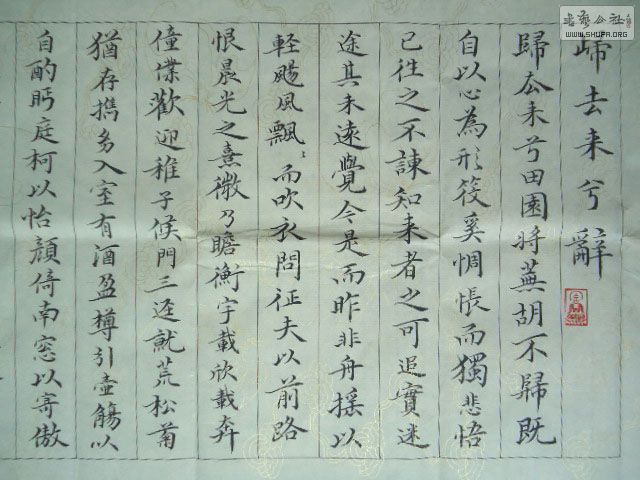 歸去来兮辭
歸去来兮田園將蕪胡不歸既
自以心為形役奚惆悵而獨悲悟
已往之不諫知来者之可追實迷
途其未遠覺今是而昨非舟摇以
軽颺風飄〻而吹衣問征夫以前路
恨晨光之熹微乃瞻衡宇載欣載奔
僮僕歡迎稚子候門三迳就荒松菊
猶存携幼入室有酒盈樽引壺觴以
自酌眄庭柯以怡顏倚南窓以寄傲
書藝公社
WWW.SHUFA.ORG